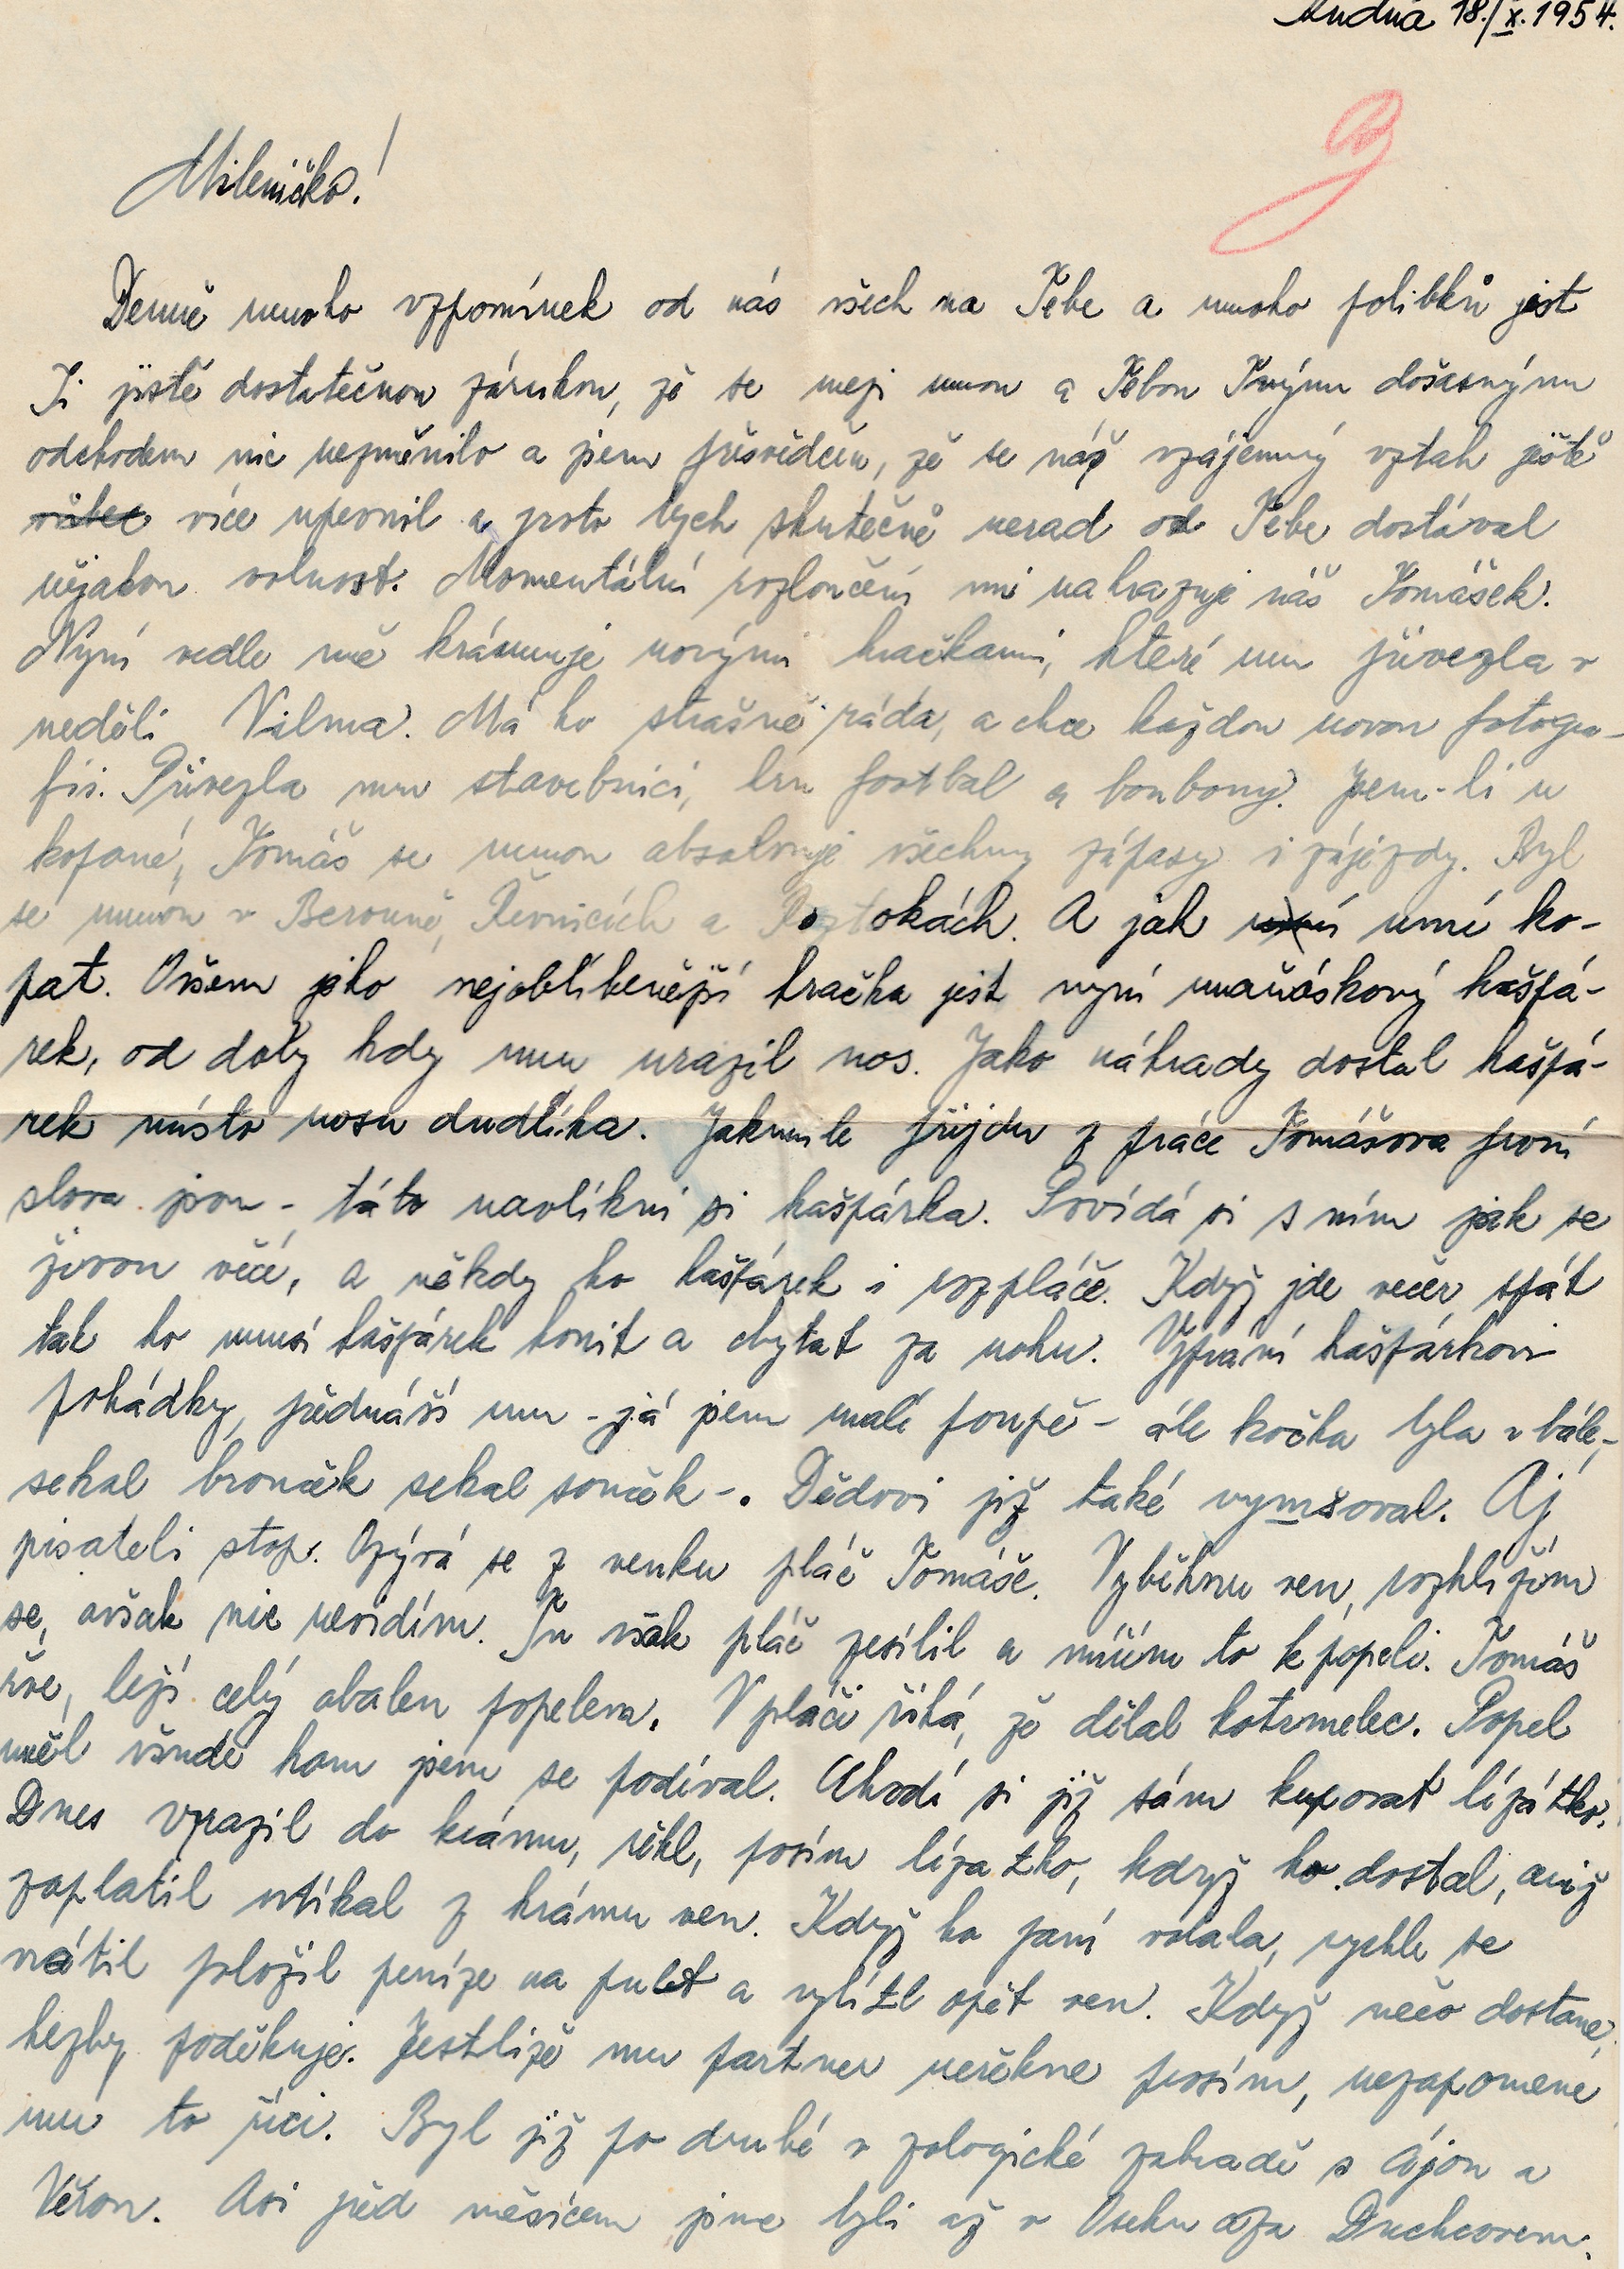 Rudná 18./X. 1954.
Mileničko!
Denně mnoho vzpomínek od nás všech na Tebe a mnoho polibků jest
Ti jistě dostatečnou zárukou, že se mezi mnou a Tebou Tvým dočasným
odchodem nic nezměnilo a jsem přesvědčen, že se náš vzájemný vztah ještě
více upevnil a proto bych skutečně nerad od Tebe dostával
nějakou volnost. Momentální rozloučení mi nahrazuje náš Tomášek.
Nyní vedle mě krámuje novými hračkami, které mu přivezla v
neděli Vilma. Má ho strašně ráda, a chce každou novou fotogra-
fii. Přivezla mu stavebnici, hru football a bonbony. Jsem-li u
kopané, Tomáš se mnou absolvuje všechny zápasy i zájezdy. Byl
se mnou v Berouně, Řevnicích a Roztokách. A jak umí ko-
pat. Ovšem jeho nejoblíbenější hračka jest nyní maňáskový kašpá-
rek, od doby kdy mu urazil nos. Jako náhrady dostal kašpá-
rek místo nosu dudlíka. Jakmile přijdu z práce Tomášova první
slova jsou - táto navlíkni si kašpárka. Povídá si s ním jak se
živou věcí, a někdy ho kašpárek i rozpláče. Když jde večer spát
tak ho musí kašpárek honit a chytat za nohu. Vypraví kašpárkovi
pohádky, přednáší mu - já jsem malé poupě - ále kočka byla v bále,-
sekal brouček sekal souček -. Dědovi již také vymšoval. Aj
pisateli stop. Ozývá se z venku pláč Tomáše. Vyběhnu ven, rozhlížím
se, avšak nic nevidím. Tu však pláč zesílil a mířím to k popeli. Tomáš
řve, leží celý obalen popelem. V pláči říká, že dělal kotrmelec. Popel
měl všude kam jsem se podíval. Chodí si již sám kupovat lízátko.
Dnes vrazil do krámu, řekl, posím lízatko, když ho dostal, aniž
zaplatil utíkal z krámu ven. Když ho paní volala, rychle se
vrátil položil peníze na pult a vylítl opět ven. Když něco dostane,
hezky poděkuje. Jestliže mu partner neřekne prosím, nezapomene
mu to říci. Byl již po druhé v zologické zahradě s Ájou a
Věrou. Asi před měsícem jsme byli až v Oseku a za Duchcovem.